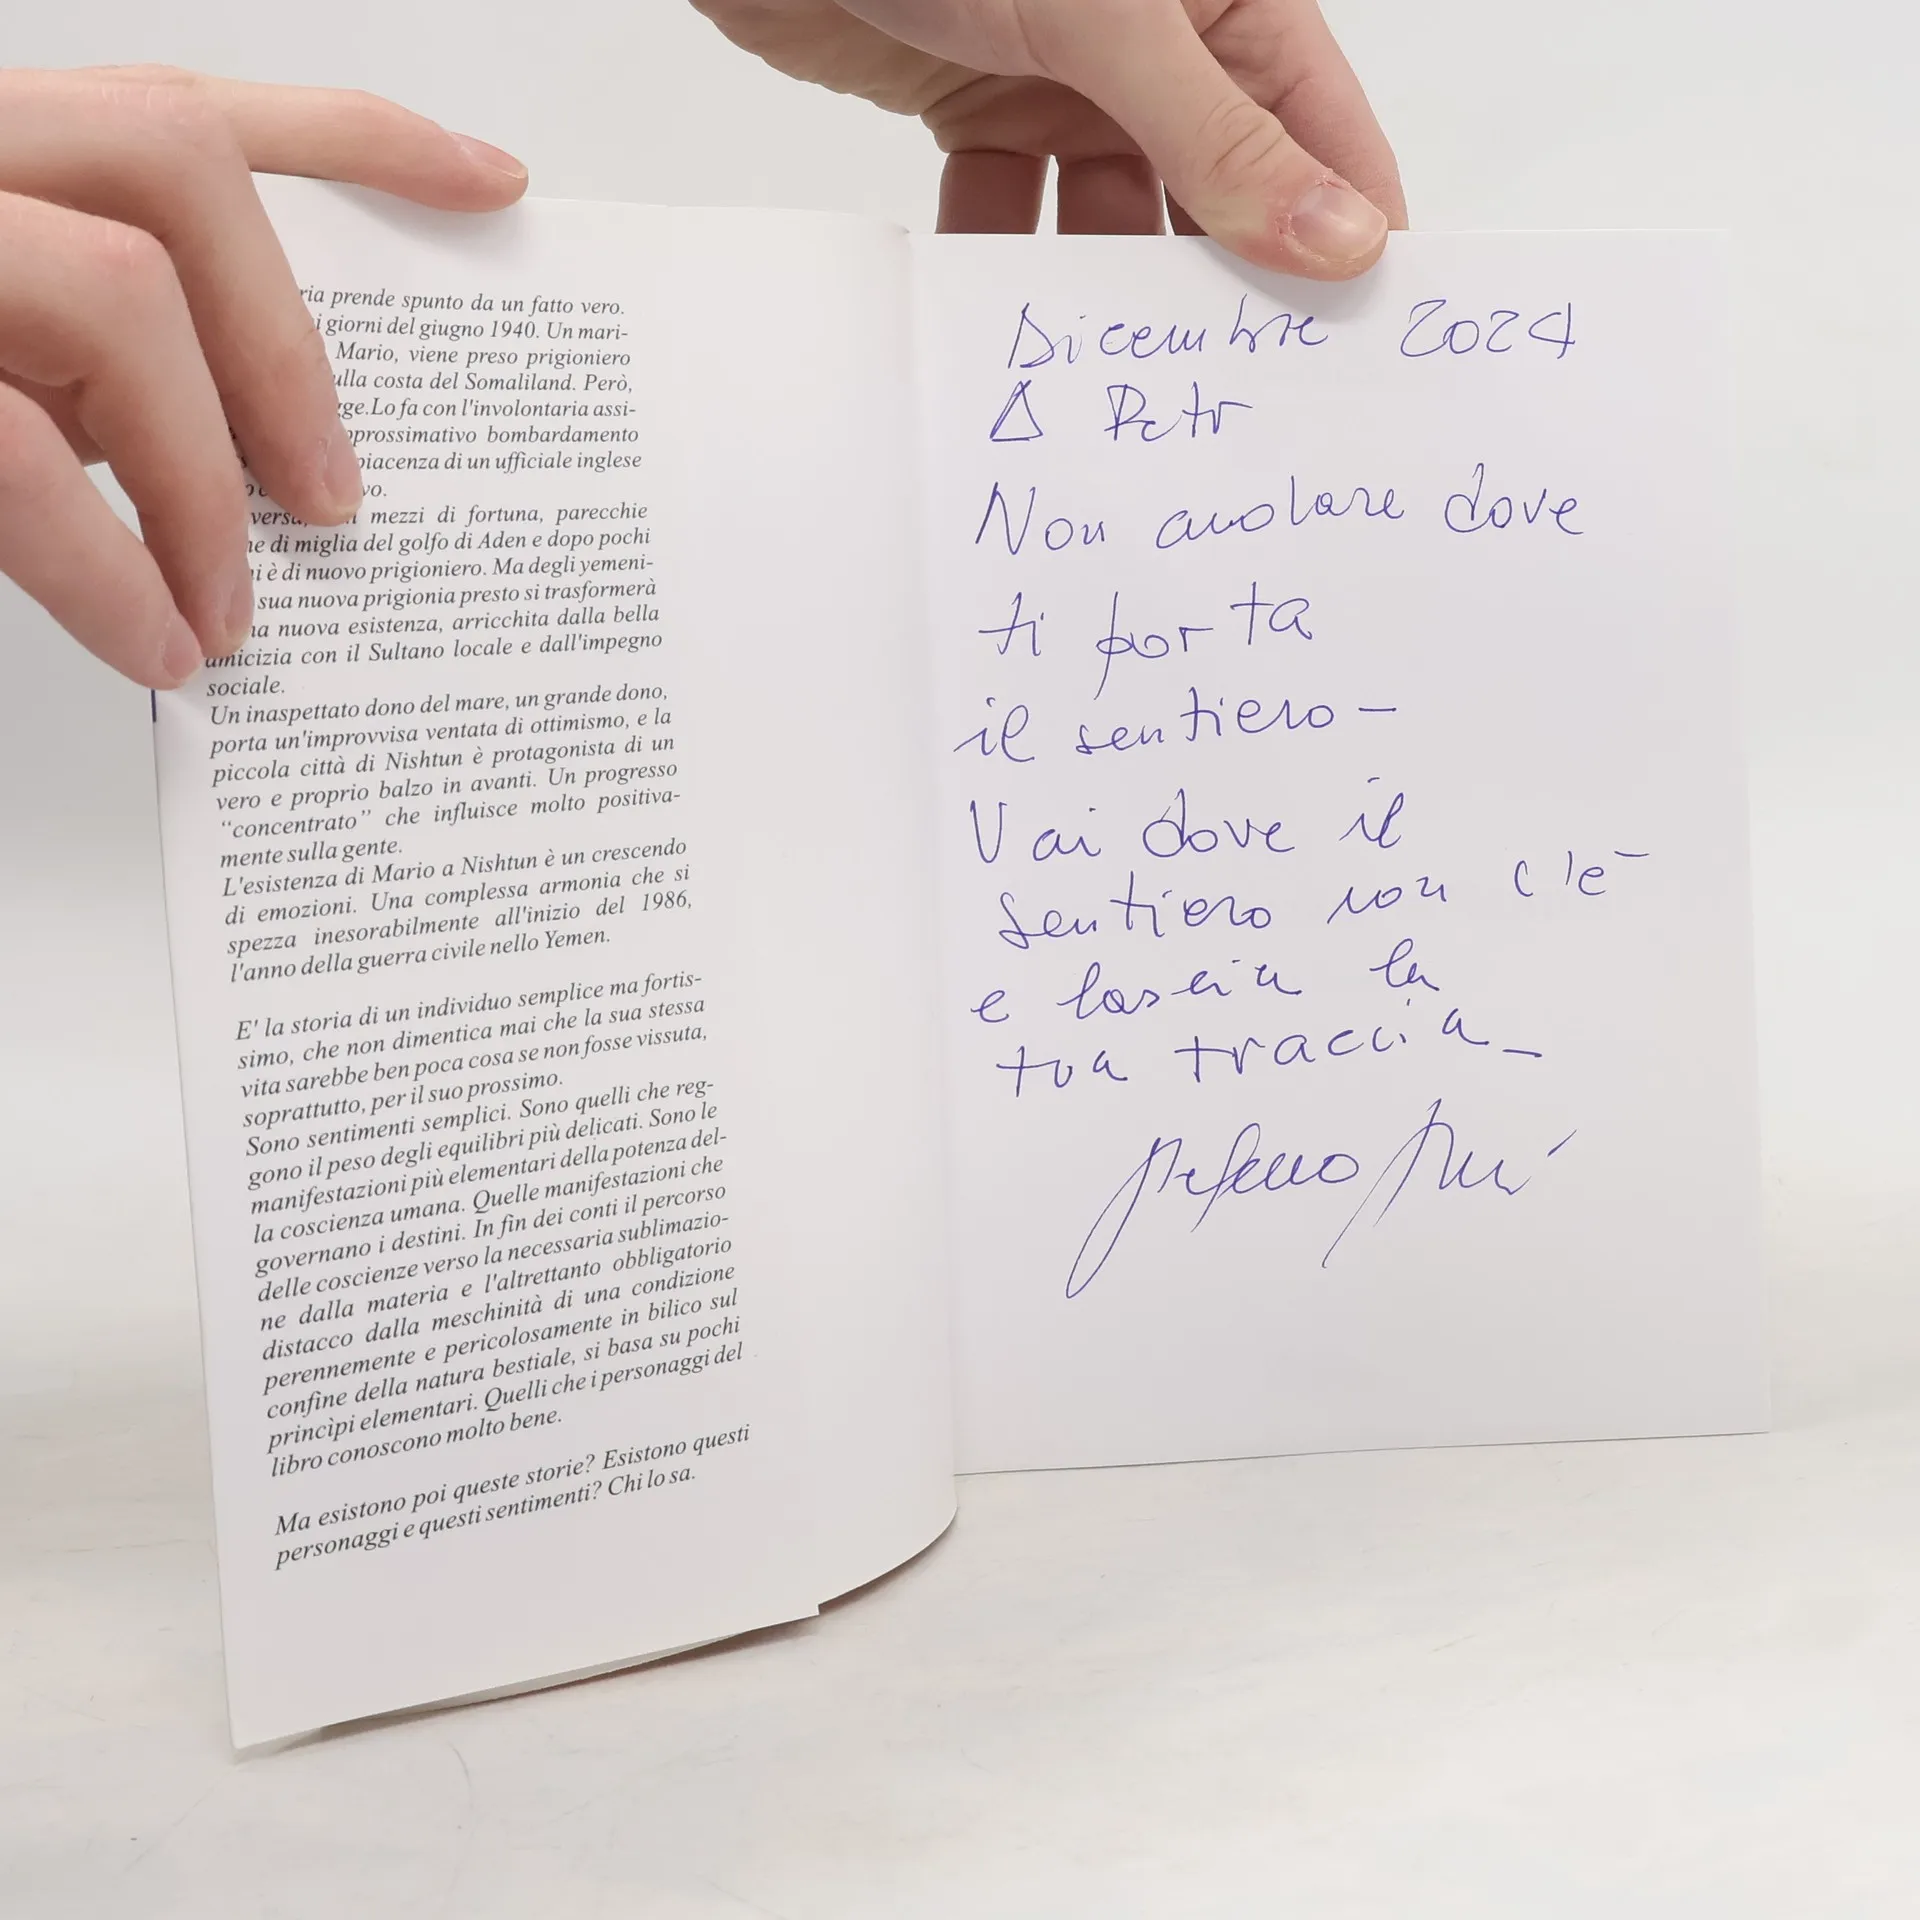 ria prende spunto da un fatto vero.
i giorni del giugno 1940. Un mari-
Mario, viene preso prigioniero
ulla costa del Somaliland. Però,
gge.Lo fa con l'involontaria assi-
pprossimativo bombardamento
piacenza di un ufficiale inglese
vo.
versa, mezzi di fortuna, parecchie
ne di miglia del golfo di Aden e dopo pochi
ni è di nuovo prigioniero. Ma degli yemeni-
sua nuova prigionia presto si trasformerà
na nuova esistenza, arricchita dalla bella
amicizia con il Sultano locale e dall'impegno
sociale.
Un inaspettato dono del mare, un grande dono,
porta un'improvvisa ventata di ottimismo, e la
piccola città di Nishtun è protagonista di un
vero e proprio balzo in avanti. Un progresso
“concentrato” che influisce molto positiva-
mente sulla gente.
L'esistenza di Mario a Nishtun è un crescendo
di emozioni. Una complessa armonia che si
spezza inesorabilmente all'inizio del 1986,
l'anno della guerra civile nello Yemen.
E' la storia di un individuo semplice ma fortis-
simo, che non dimentica mai che la sua stessa
vita sarebbe ben poca cosa se non fosse vissuta,
soprattutto, per il suo prossimo.
Sono sentimenti semplici. Sono quelli che reg-
gono il peso degli equilibri più delicati. Sono le
manifestazioni più elementari della potenza del-
la coscienza umana. Quelle manifestazioni che
governano i destini. In fin dei conti il percorso
delle coscienze verso la necessaria sublimazio-
ne dalla materia e l'altrettanto obbligatorio
distacco dalla meschinità di una condizione
perennemente e pericolosamente in bilico sul
confine della natura bestiale, si basa su pochi
princìpi elementari. Quelli che i personaggi del
libro conoscono molto bene.
Ma esistono poi queste storie? Esistono questi
personaggi e questi sentimenti? Chi lo sa.
Dicembre 2024
A Petr
Non andare dove
ti porta
il sentiero –
Vai dove il
sentiero non c'è
e lascia la
tua traccia_
Stefano